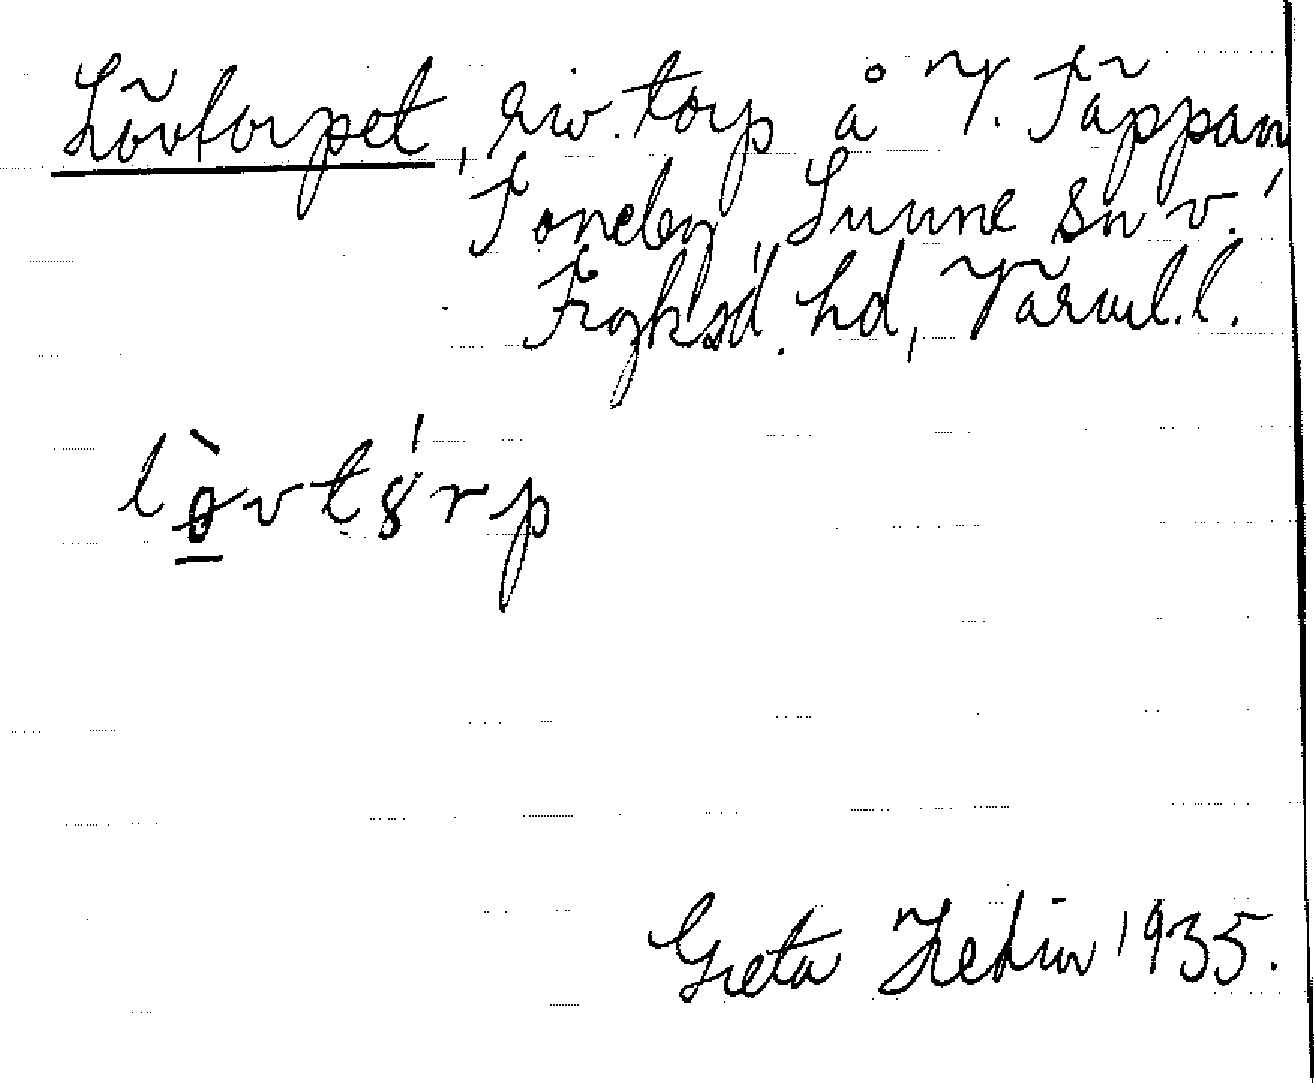 Lövtorpet, riv. torp å V. Täppan,
Toneby, Sunne sn v.
Fryksd. hd, Värml. l.
lø̀vtórp
Greta Hedin 1935.